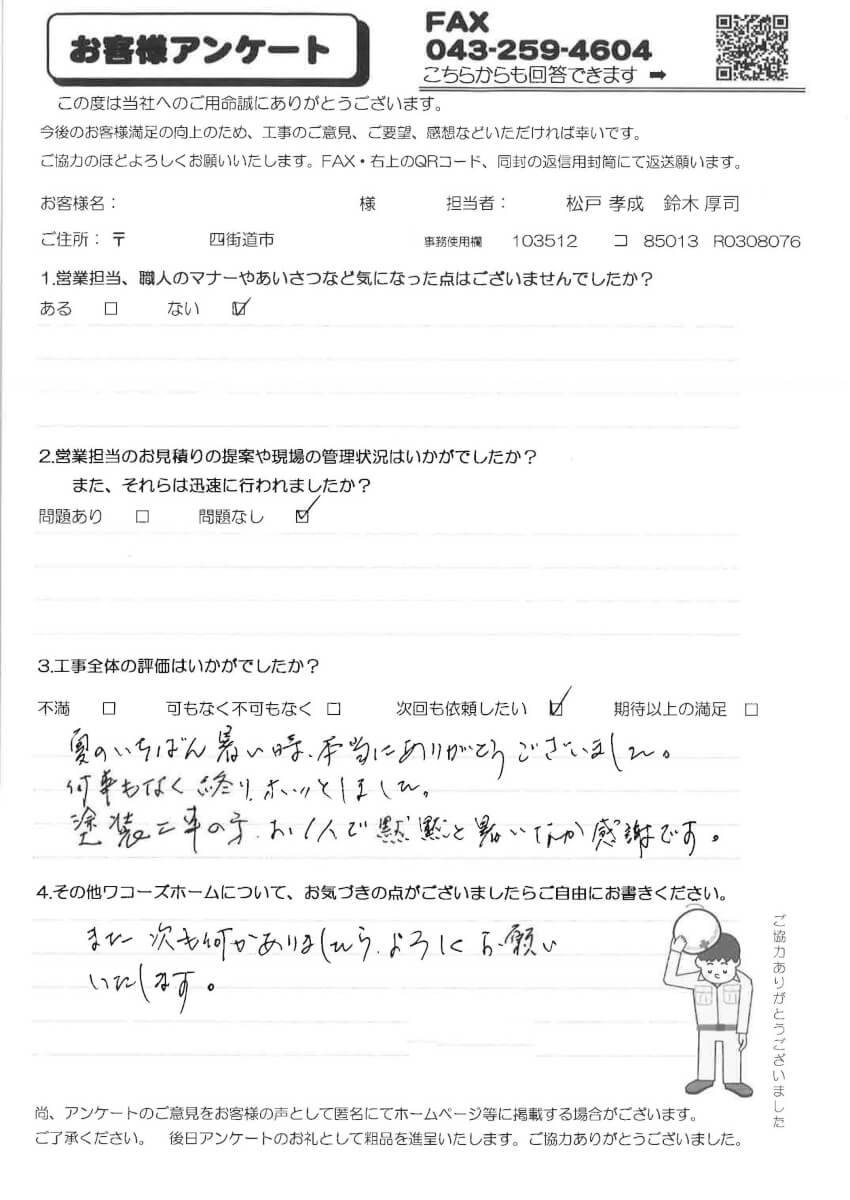 お客様アンケート
FAX
043-259-4604
こちらからも回答できます ➡
この度は当社へのご用命誠にありがとうございます。
今後のお客様満足の向上のため、工事のご意見、ご要望、感想などいただければ幸いです。
ご協力のほどよろしくお願いいたします。FAX・右上のQRコード、同封の返信用封筒にて返送願います。
お客様名： 様 担当者： 松戸 孝成 鈴木 厚司
ご住所：〒 四街道市 事務使用欄 103512 コ 85013 R0308076
1.営業担当、職人のマナーやあいさつなど気になった点はございませんでしたか？
ある □ ない ☑
2.営業担当のお見積りの提案や現場の管理状況はいかがでしたか？
また、それらは迅速に行われましたか？
問題あり □ 問題なし ☑
3.工事全体の評価はいかがでしたか？
不満 □ 可もなく不可もなく □ 次回も依頼したい ☑ 期待以上の満足 □
夏のいちばん暑い時、本当にありがとうございました。
何事もなく終り、ホッとしました。
塗装工事の方、お1人で黙黙と暑いなか感謝です。
4.その他ワコーズホームについて、お気づきの点がございましたらご自由にお書きください。
また次も何かありましたら、よろしくお願い
いたします。
ご協力ありがとうございました
尚、アンケートのご意見をお客様の声として匿名にてホームページ等に掲載する場合がございます。
ご了承ください。 後日アンケートのお礼として粗品を進呈いたします。ご協力ありがとうございました。